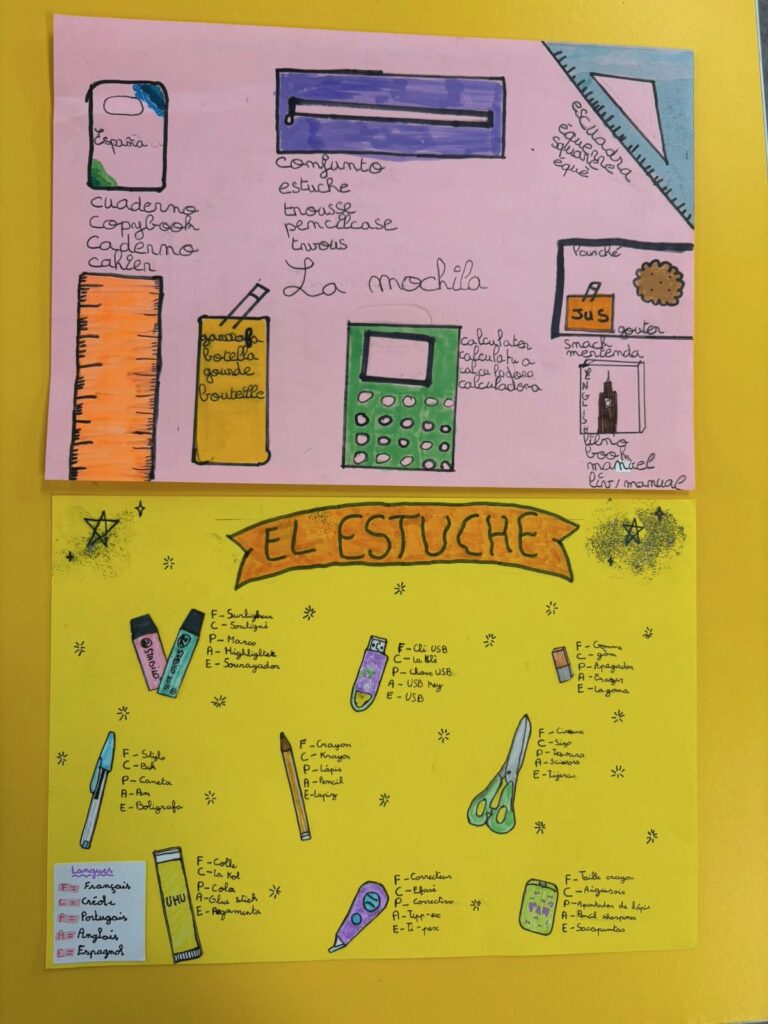 España
cuaderno
copybook
caderno
cahier
conjunto
estuche
trousse
pencilcase
trwous
escuadra
équerre
square
équè
La mochila
JUS
gouter
smack
merienda
garrafa
botella
gourde
bouteille
calculator
calculadora
calculadora
ENGLISH
libro
book
manuel
liv/manual
EL ESTUCHE
STABILO
STABILO
F - Surligneur
C - Souligné
P - Marco
A - Highlighter
E - Sourayador
F - Clé USB
C - La klé
P - Chave USB
A - USB Key
E - USB
F - Gomme
C - gòm
P - Apagador
A - Eraser
E - La goma
F - Stylo
C - Bik
P - Caneta
A - Pen
E - Boligrafo
F - Crayon
C - Krayon
P - Lápis
A - Pencil
E - Lapiz
F - Ciseaux
C - Sizo
P - Tesoura
A - Scissors
E - Tijeras
Langues
F = Français
C = Créole
P = Portugais
A = Anglais
E = Espagnol
UHU
F - Colle
C - La kol
P - Cola
A - Glue stick
E - Pegamenta
F - Correcteur
C - Efasé
P - Corrective
A - Tipp-ex
E - Ti-pex
F - Taille crayon
C - Aiguisois
P - Apontador de lápis
A - Pencil sharpener
E - Sacapuntas